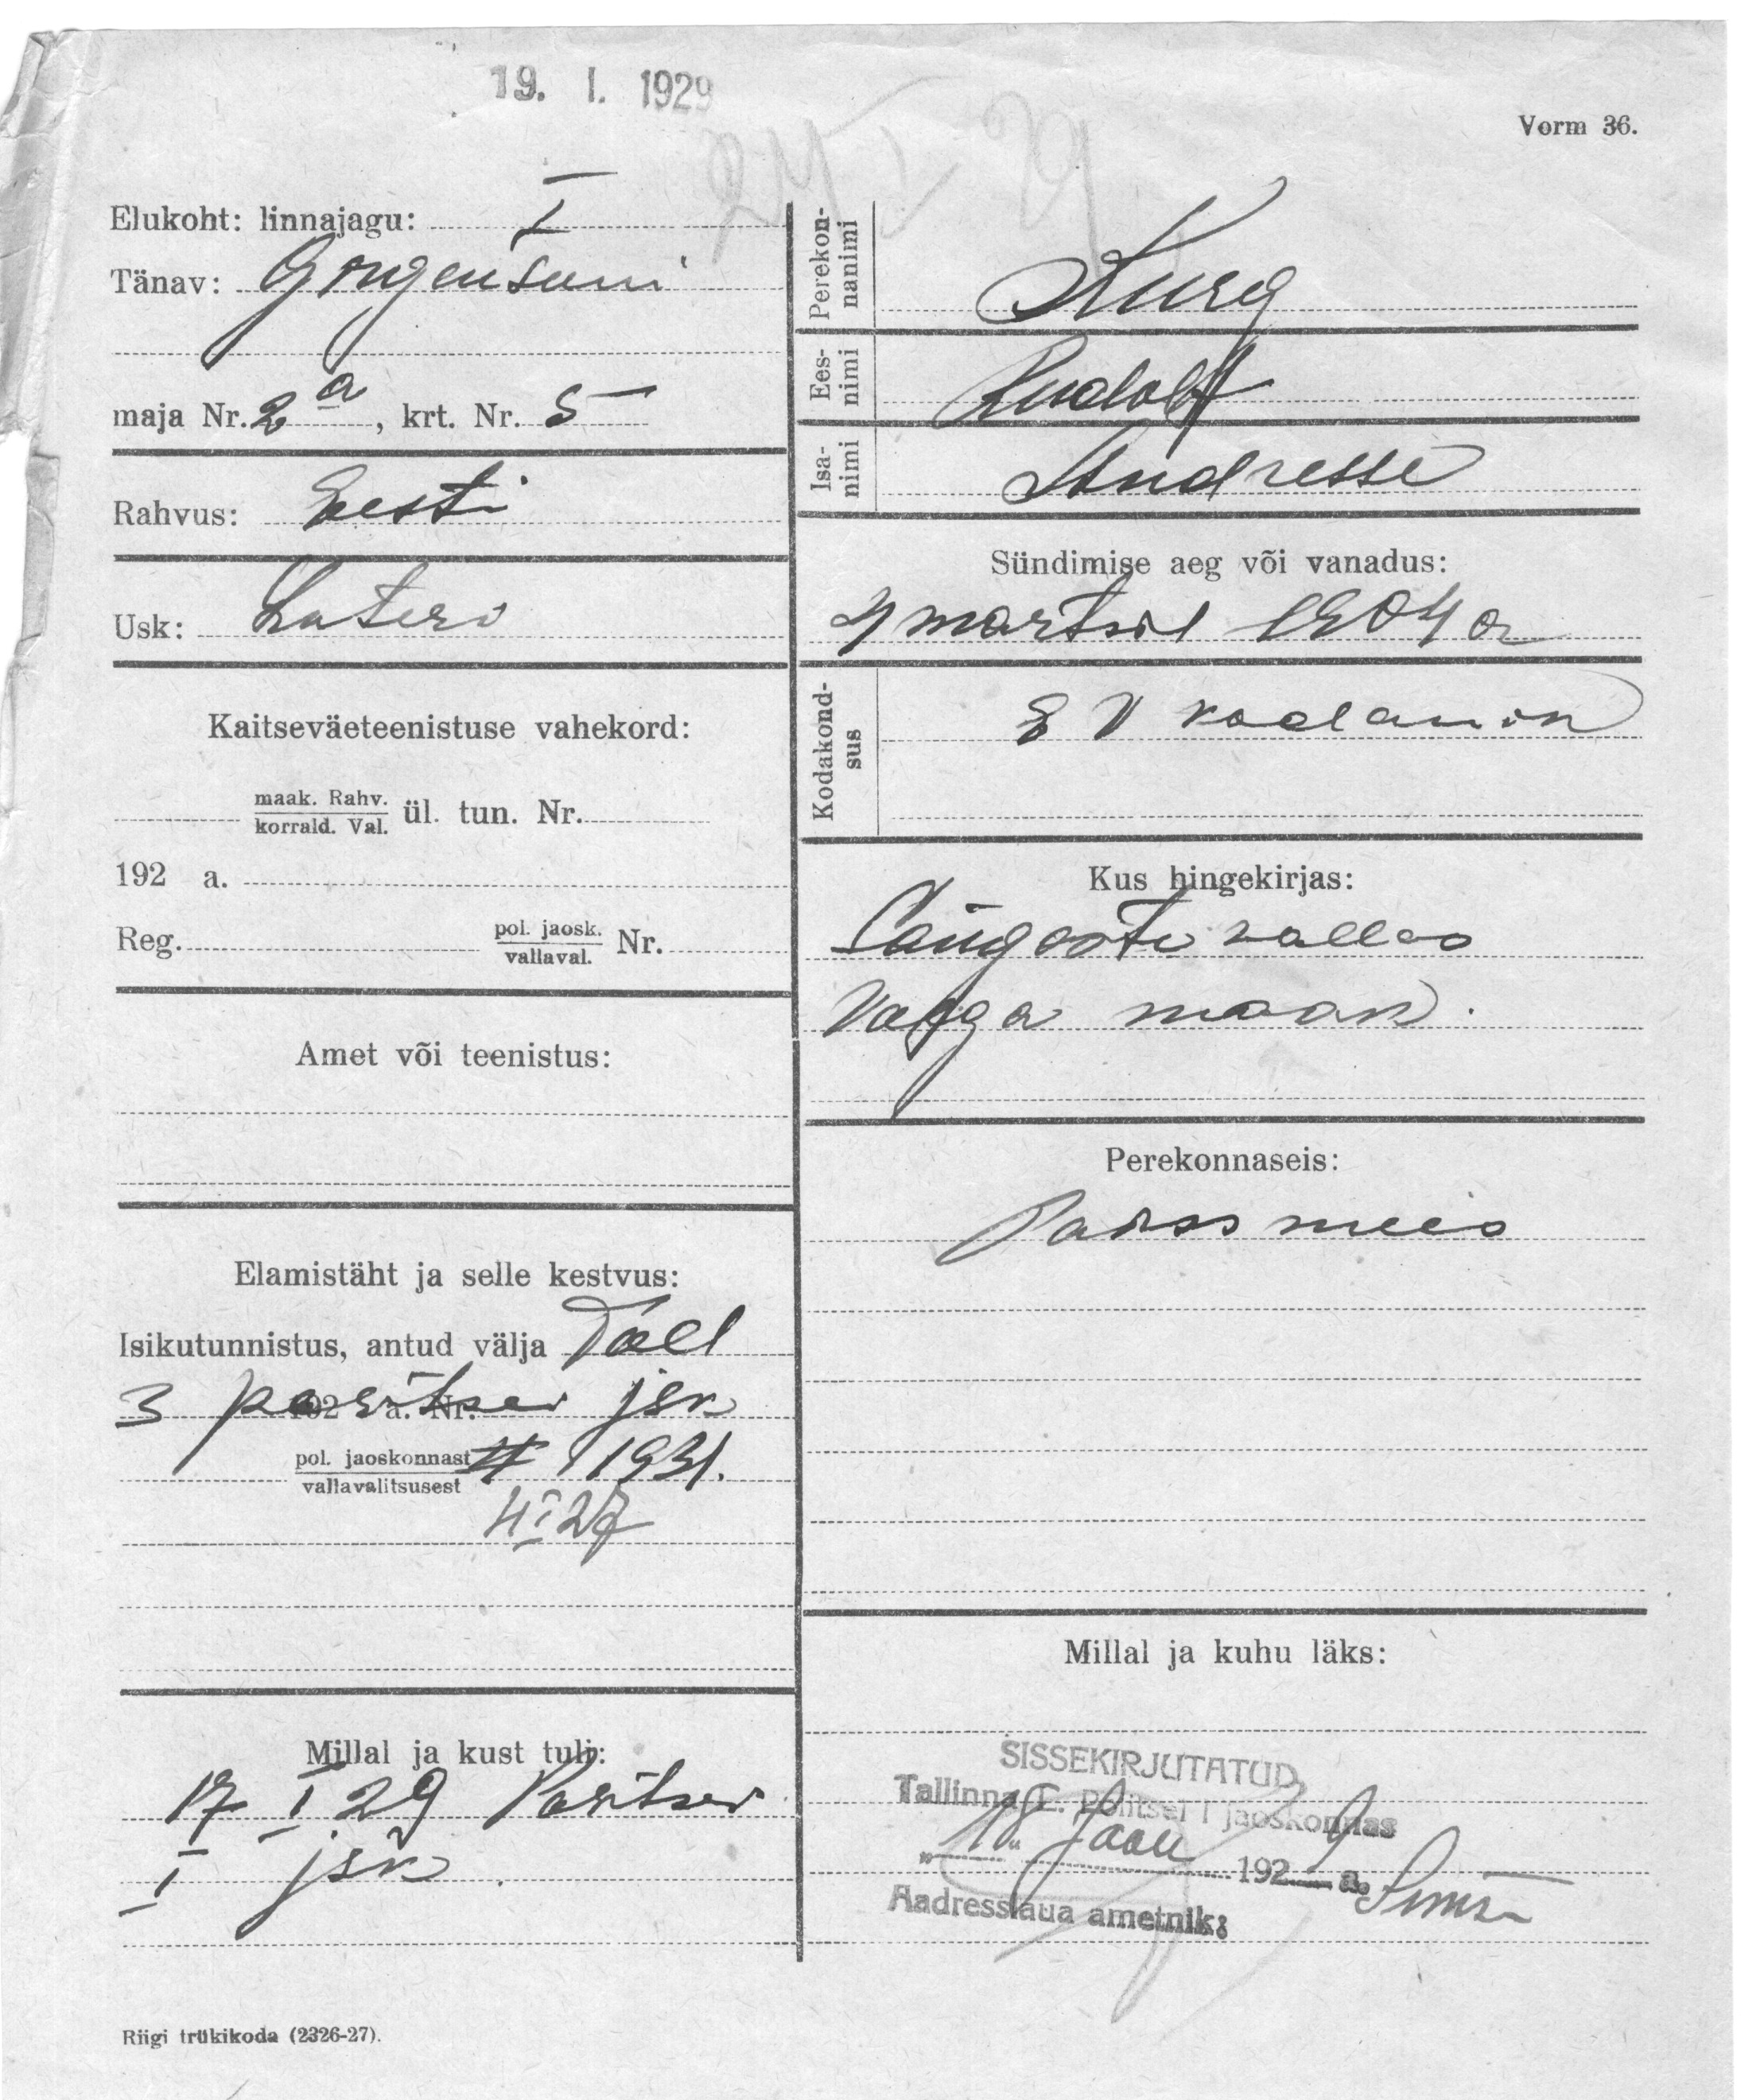 19. I. 1929
Vorm 36.
Elukoht: linnajagu: I
Tänav: Gonsensuni
maja Nr. 2 a, krt. Nr. 5
Rahvus: Eesti
Usk: Luteri
Kaitseväeteenistuse vahekord:
maak. Rahv.
korrald. Val. ül. tun. Nr.
192 a.
Reg. pol. jaosk.
vallaval. Nr.
Amet või teenistus:
Elamistäht ja selle kestvus:
Isikutunnistus, antud välja Tall
3 politsei jsk
192 a. Nr.
pol. jaoskonnast 1931.
vallavalitsusest
4 I 27
Millal ja kust tuli:
17 I 29 Politsei
I jsk.
Perekon-
nanimi Kurg
Ees-
nimi Rudolf
Isa-
nimi Andresse
Sündimise aeg või vanadus:
4 märtsil 1904 a
Kodakond-
sus E V kodanik
Kus hingekirjas:
Sangaste vallas
Valga maak.
Perekonnaseis:
Poissmees
Millal ja kuhu läks:
SISSEKIRJUTATUD
Tallinna L. Politsei I jaoskonnas
"18" Jaan 1929 a.
Aadresslaua ametnik:
Riigi trükikoda (2326-27).